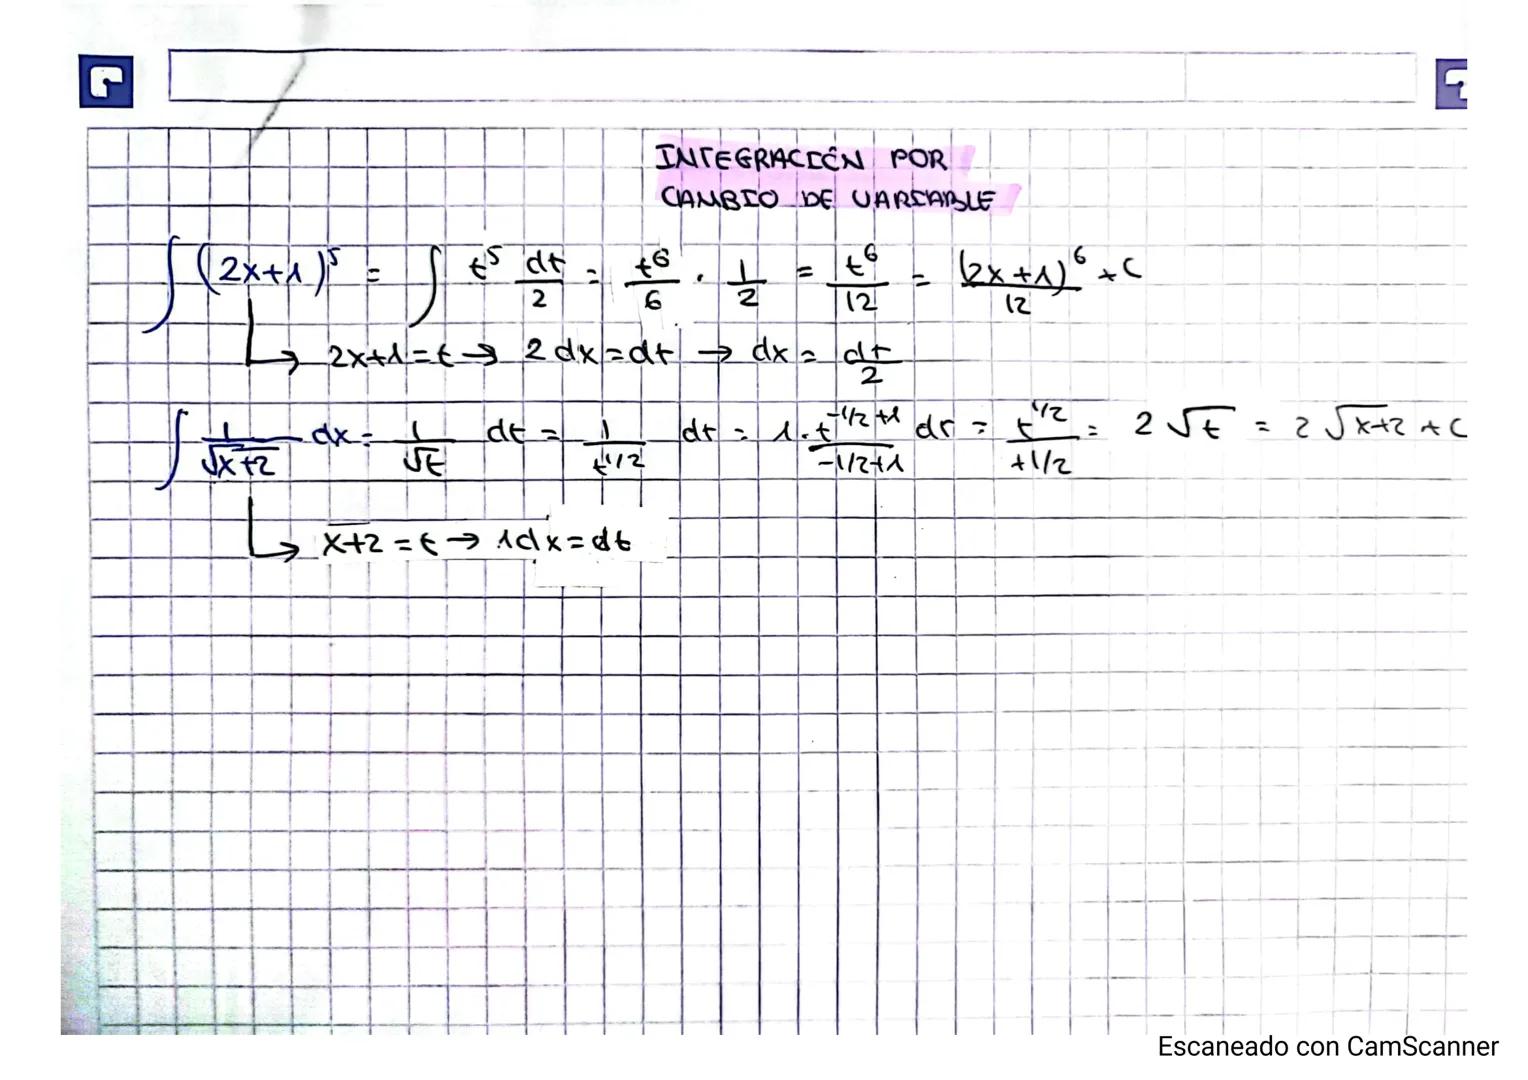 INTEGRACIÓN POR
CAMBIO DE VARIABLE
∫(2x+1)⁵ = ∫ t⁵ dt/2 = t⁶/6 · 1/2 = t⁶/12 = (2x+1)⁶/12 + C
↳ 2x+1=t → 2 dx=dt → dx = dt/2
∫ 1/√x+2 dx = 1/√t dt = 1/t^1/2 dt = 1·t^-1/2+1/-1/2+1 dt = t^1/2/+1/2 = 2√t = 2√x+2 + C
↳ x+2 = t → 1dx=dt
Escaneado con CamScanner